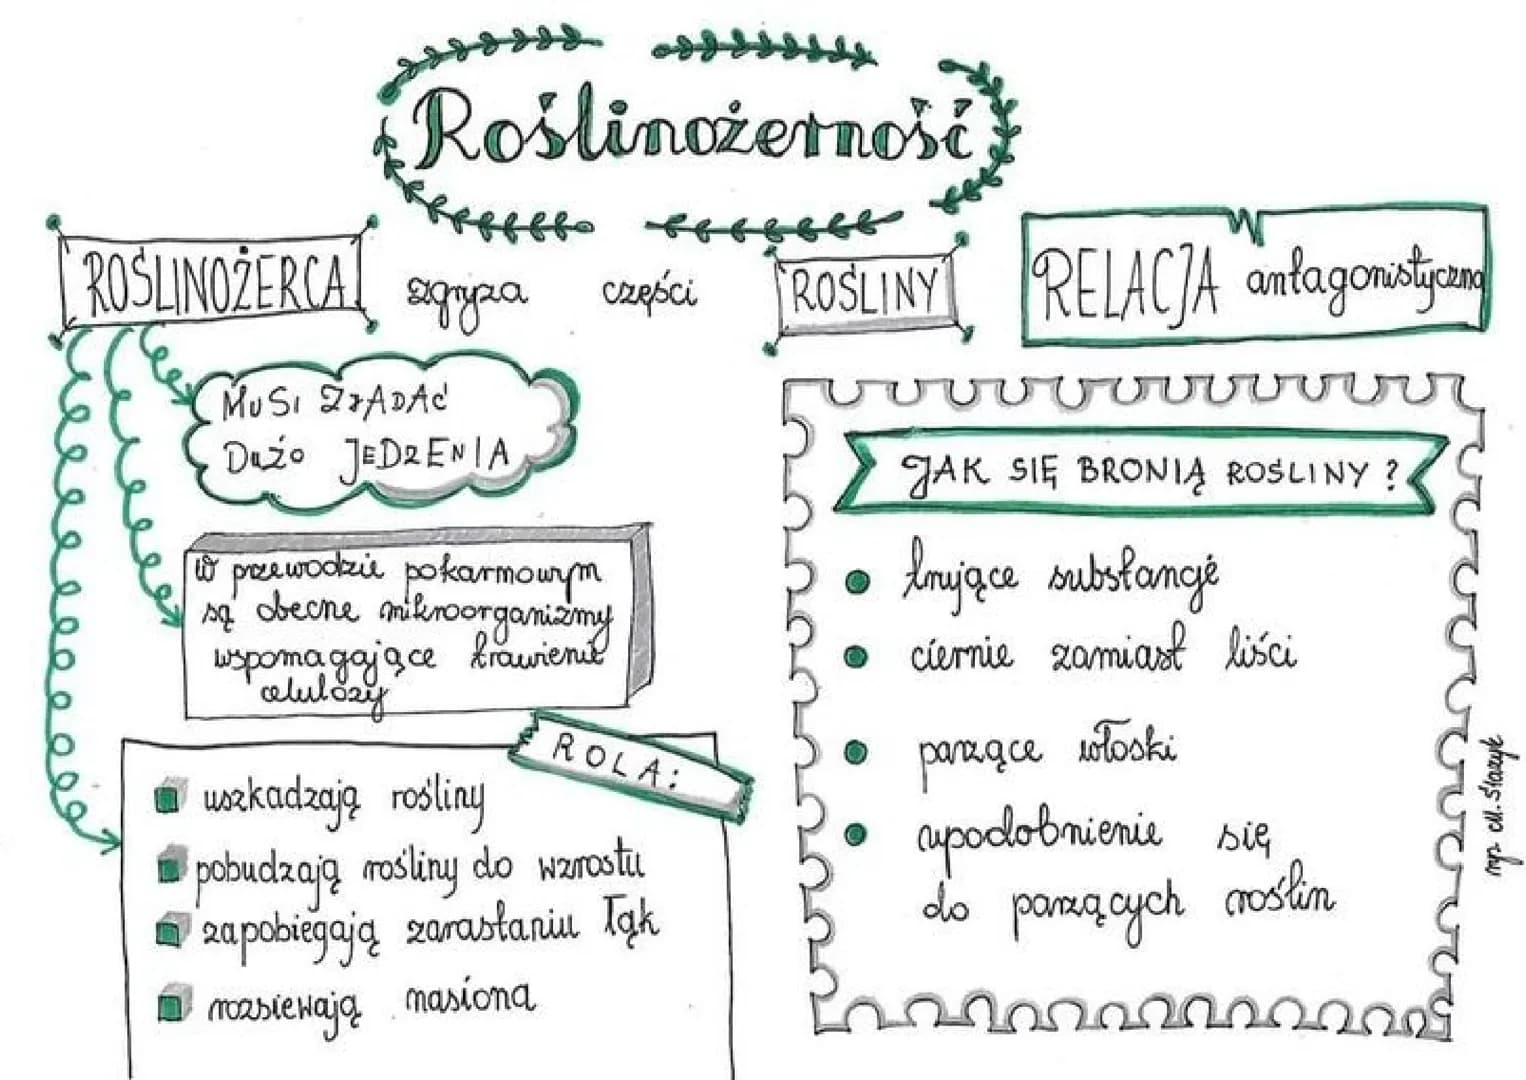 Roślinożerność
ROŚLINOŻERCA zgryza części ROŚLINY
RELACJA antagonistyczna
MUSI ZJADAĆ
DUŻO JEDZENIA
W przewodzie pokarmowym
są obecne mikroorganizmy
wspomagające trawienie
celulozy
ROLA:
uszkadzają rośliny
pobudzają rośliny do wzrostu
zapobiegają zarastaniu łąk
rozsiewają nasiona
JAK SIĘ BRONIĄ ROŚLINY ?
trujące substancje
ciernie zamiast liści
parzące włoski
upodobnienie się
do parzących roślin